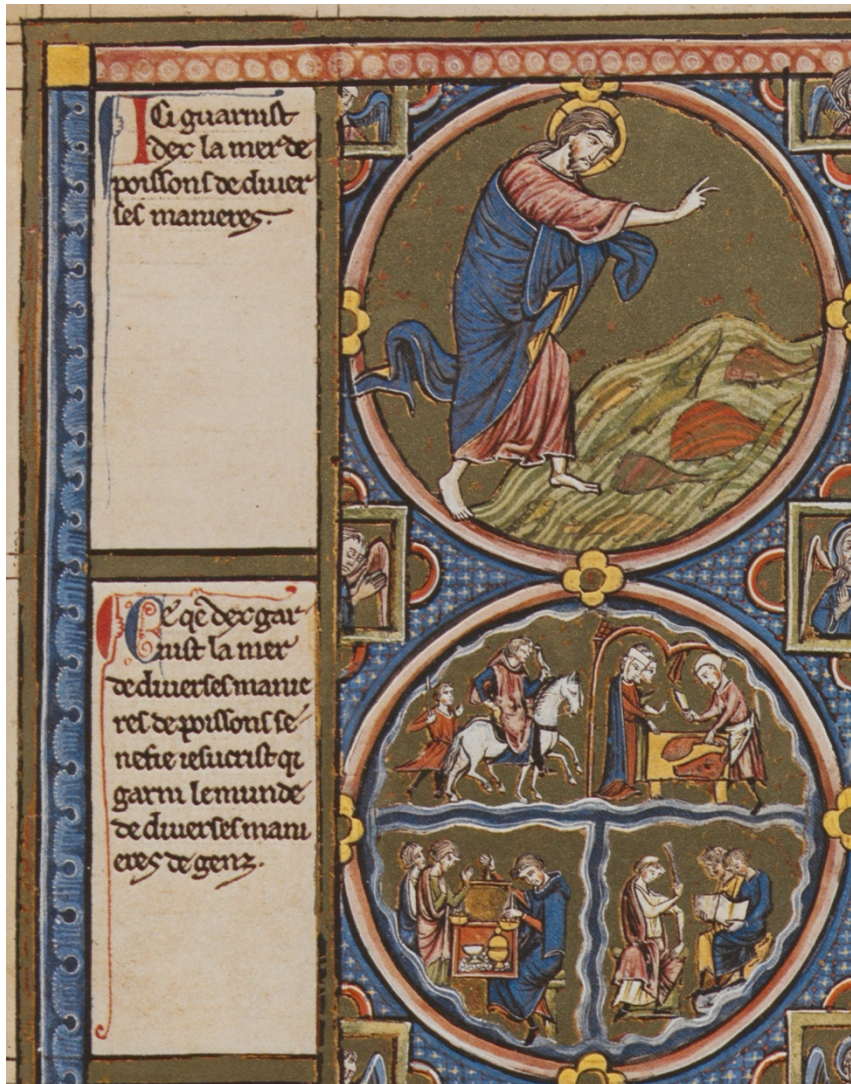 Ici guarnist
dex la mer de
poissons de diuer
ses manieres.
Ce qe dex gar-
nist la mer
de diuerses manie
res de poissons se-
nefie iesucrist qi
garni le munde
de diuerses mani
eres de genz.